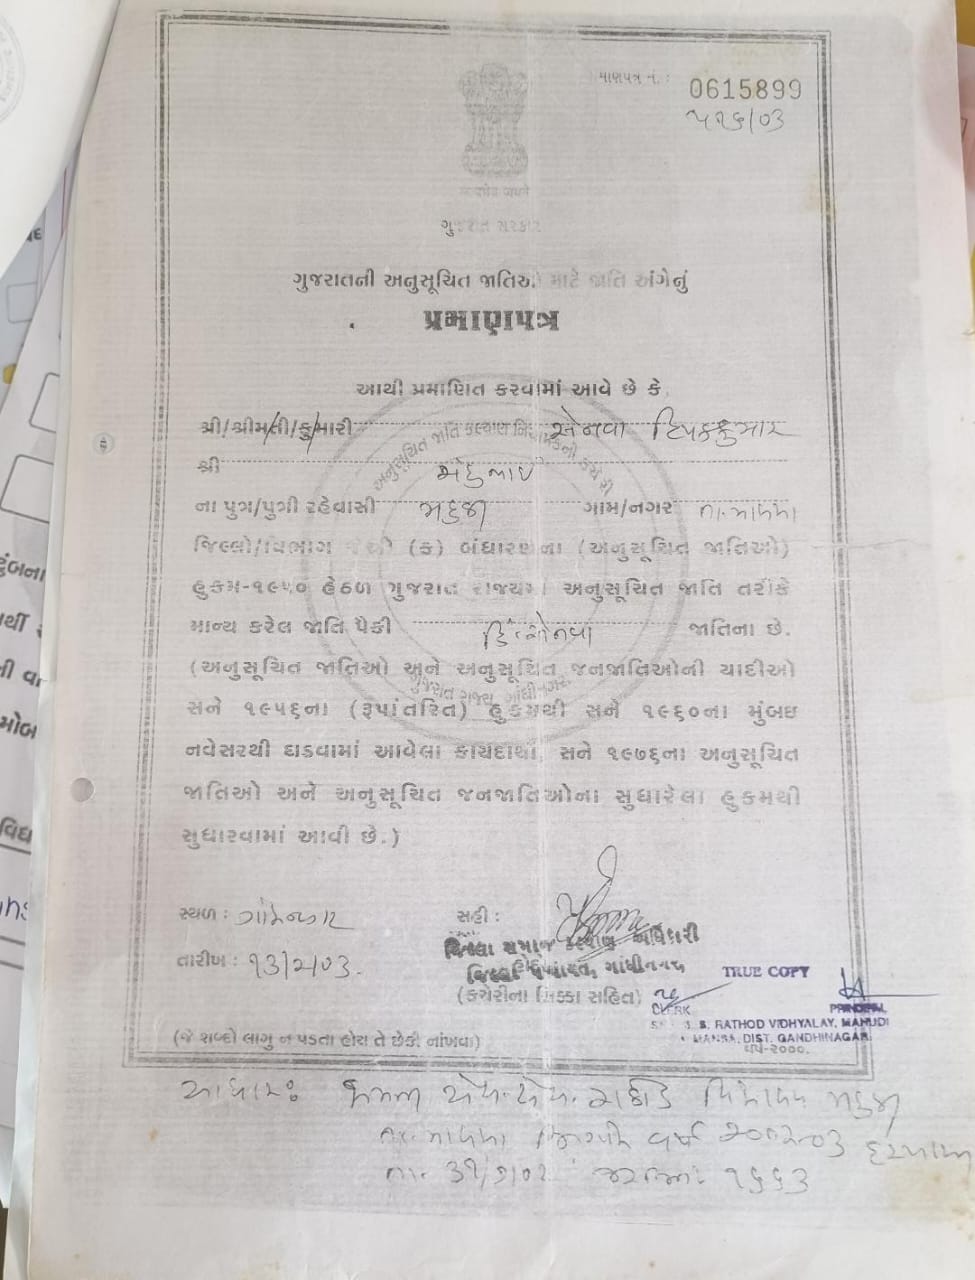 પ્રમાણપત્ર નં. :
0615899
૫૨૬/03
સત્યમેવ જયતે
ગુજરાત સરકાર
ગુજરાતની અનુસૂચિત જાતિઓ માટે જાતિ અંગેનું
પ્રમાણપત્ર
આથી પ્રમાણિત કરવામાં આવે છે કે,
શ્રી/શ્રીમતી/કુમારી સેનવા દિપકકુમાર
શ્રી
ના પુત્ર/પુત્રી રહેવાસી મહુડી ગામ/નગર તા. માણસા
જિલ્લો/વિભાગ જેથી (ક) બંધારણના (અનુસૂચિત જાતિઓ)
હુકમ-૧૯૫૦ હેઠળ ગુજરાત રાજ્યમાં અનુસૂચિત જાતિ તરીકે
માન્ય કરેલ જાતિ પૈકી હિં.સેનવા જાતિના છે.
(અનુસૂચિત જાતિઓ અને અનુસૂચિત જનજાતિઓની યાદીઓ
સને ૧૯૫૬ના (રૂપાંતરિત) હુકમથી સને ૧૯૬૦ના મુંબઇ
નવેસરથી ઘડવામાં આવેલા કાયદાથી, સને ૧૯૭૬ના અનુસૂચિત
જાતિઓ અને અનુસૂચિત જનજાતિઓના સુધારેલા હુકમથી
સુધારવામાં આવી છે.)
સ્થળ : ગાંધીનગર
સહી :
જિલ્લા સમાજ કલ્યાણ અધિકારી
તારીખ : ૧૩/૨/03.
જિલ્લા પંચાયત, ગાંધીનગર
(કચેરીના સિક્કા સહિત)
TRUE COPY
CLERK
PRINCIPAL,
B. RATHOD VIDHYALAY, MAHUDI
MANSA, DIST. GANDHINAGAR
વર્ષ-૨૦૦૦.
(જે શબ્દો લાગુ ન પડતા હોય તે છેકી નાંખવા)
આધાર: રાઠોડ વિદ્યાલય મહુડી
તા. માણસા વર્ષ
તા.